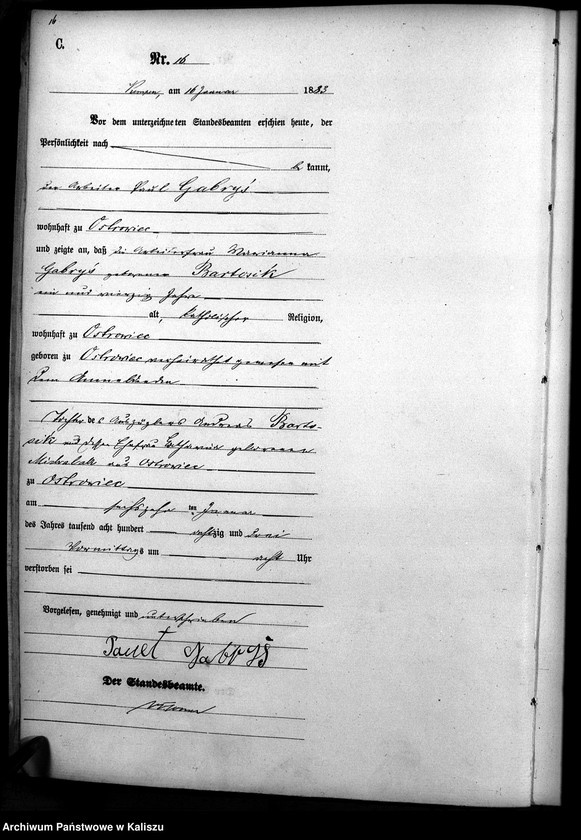 16
C.
Nr. 16
am 16 Januar 1883
Vor dem unterzeichneten Standesbeamten erschien heute, der
Persönlichkeit nach
kannt,
der Arbeiter Paul Gabryś
wohnhaft zu Ostrowiec
und zeigte an, daß die Arbeiterfrau Marianna
Gabryś geborene Bartosik
ein und vierzig Jahre
alt, katholischer Religion,
wohnhaft zu Ostrowiec
geboren zu Ostrowiec verheirathet gewesen mit
dem Anmeldenden
Tochter des Auszüglers Andreas Barto-
sik und dessen Ehefrau Catharina geborenen
aus Ostrowiec
zu Ostrowiec
am sechszehn ten Januar
des Jahres tausend acht hundert achtzig und drei
Vormittags um acht Uhr
verstorben sei
Vorgelesen, genehmigt und unterschrieben
Paweł Gabryś
Der Standesbeamte.
Archiwum Państwowe w Kaliszu